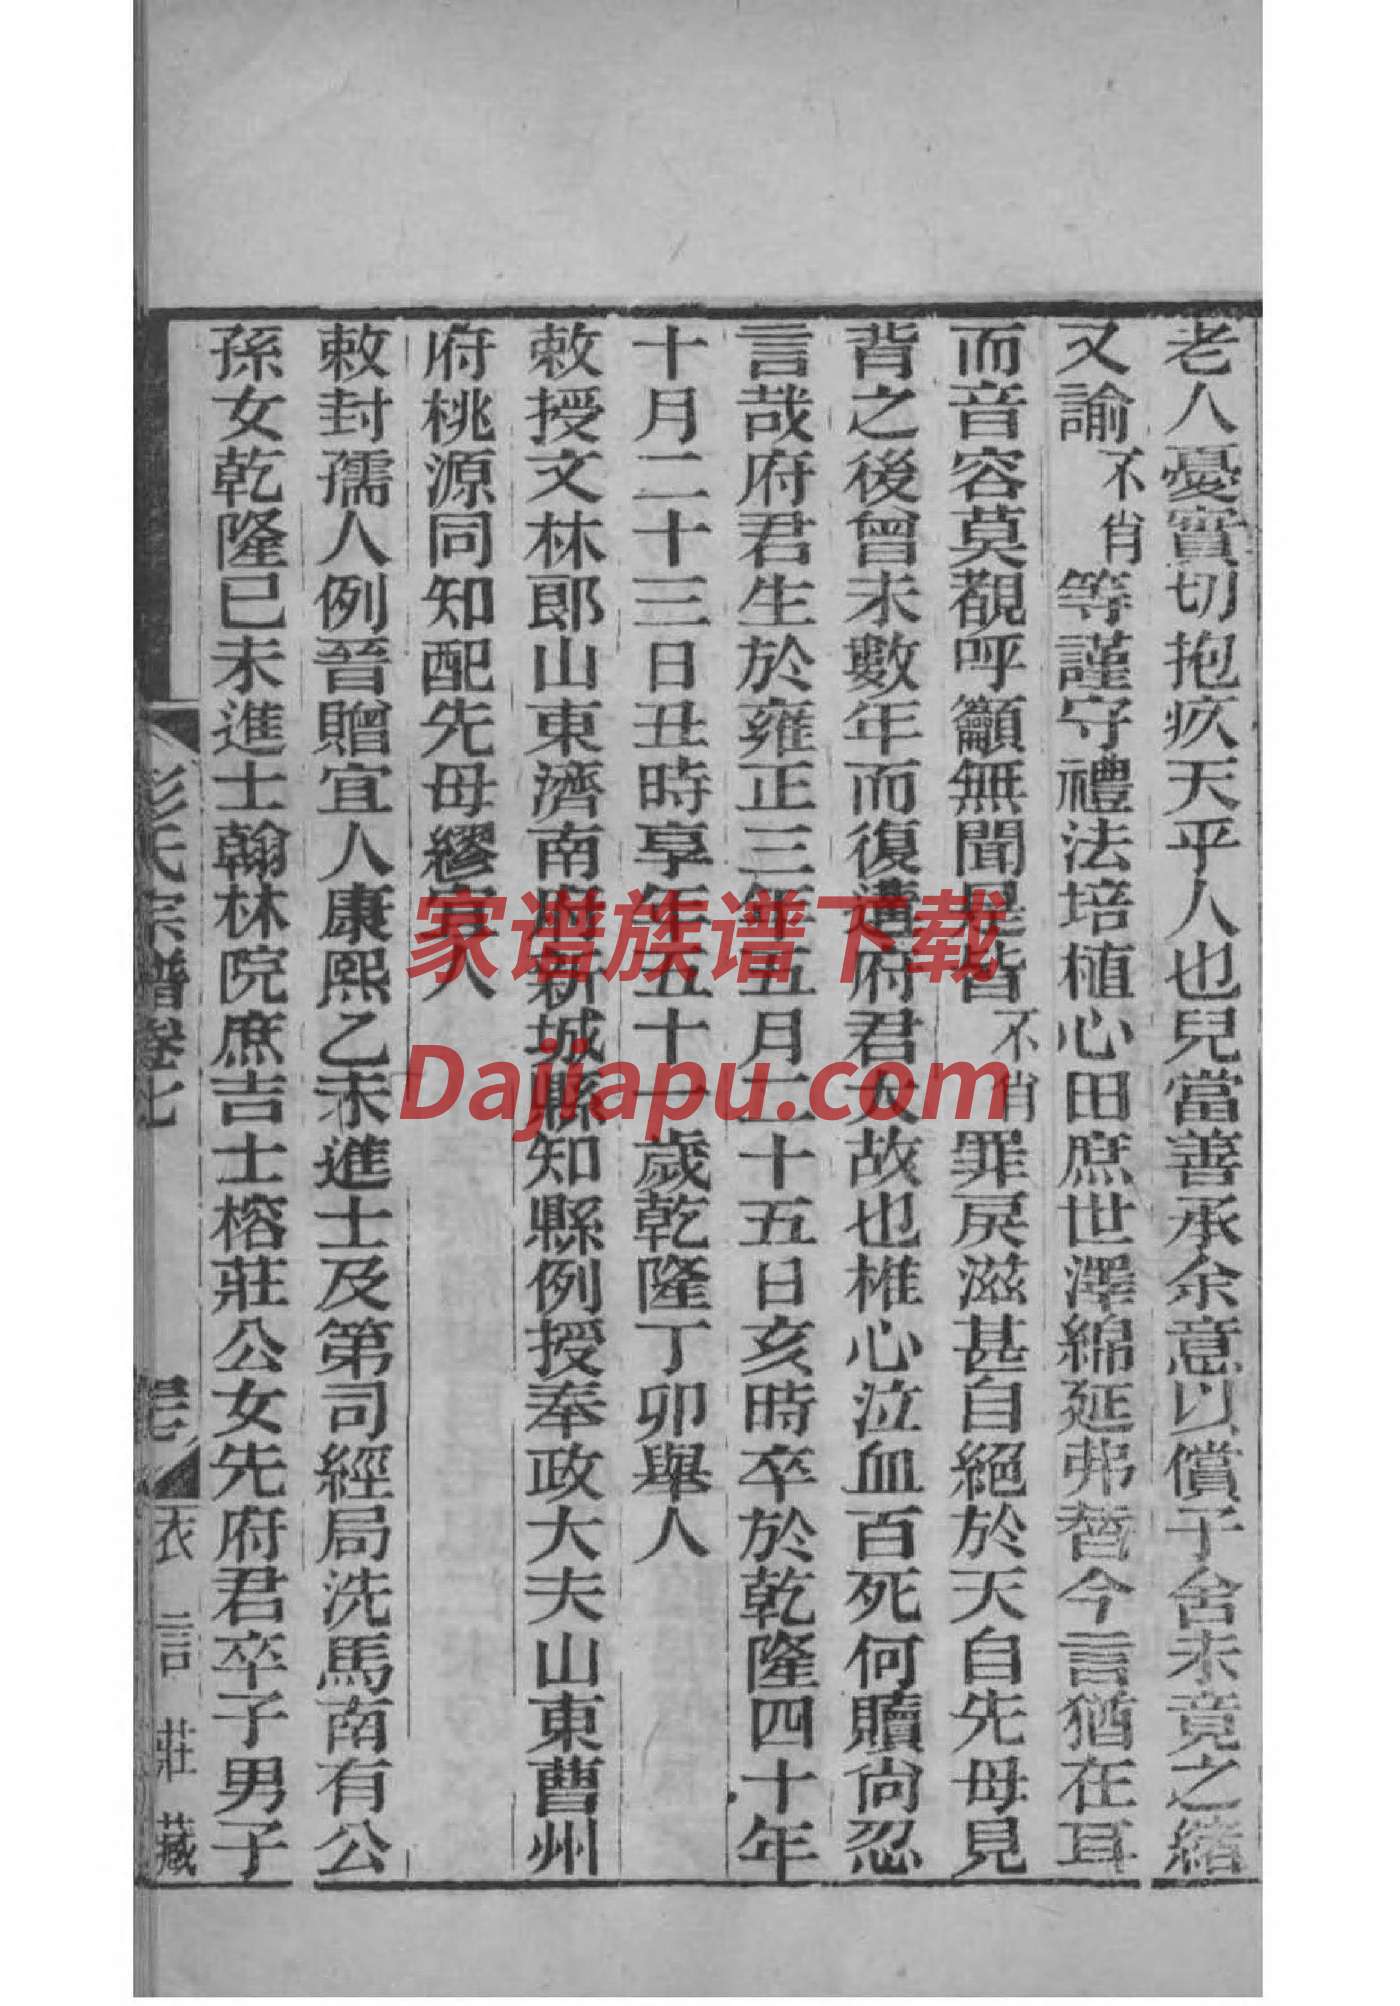 老人憂實切抱疚天乎人也兒當善承余意以償予舍未竟之緒
又諭不肖等謹守禮法培植心田庶世澤綿延弗替今言猶在耳
而音容莫覩呼籲無聞是皆不肖罪戾滋甚自絕於天自先母見
背之後曾未數年而復遭府君大故也椎心泣血百死何贖尙忍
言哉府君生於雍正三年五月二十五日亥時卒於乾隆四十年
十月二十三日丑時享年五十一歲乾隆丁卯舉人
敕授文林郎山東濟南府新城縣知縣例授奉政大夫山東曹州
府桃源同知配先母繆宜人
敕封孺人例晉贈宜人康熙乙未進士及第司經局洗馬南有公
孫女乾隆己未進士翰林院庶吉士榕莊公女先府君卒子男子
彭氏宗譜卷七
衣言莊藏
家谱族谱下载
Dajiapu.com